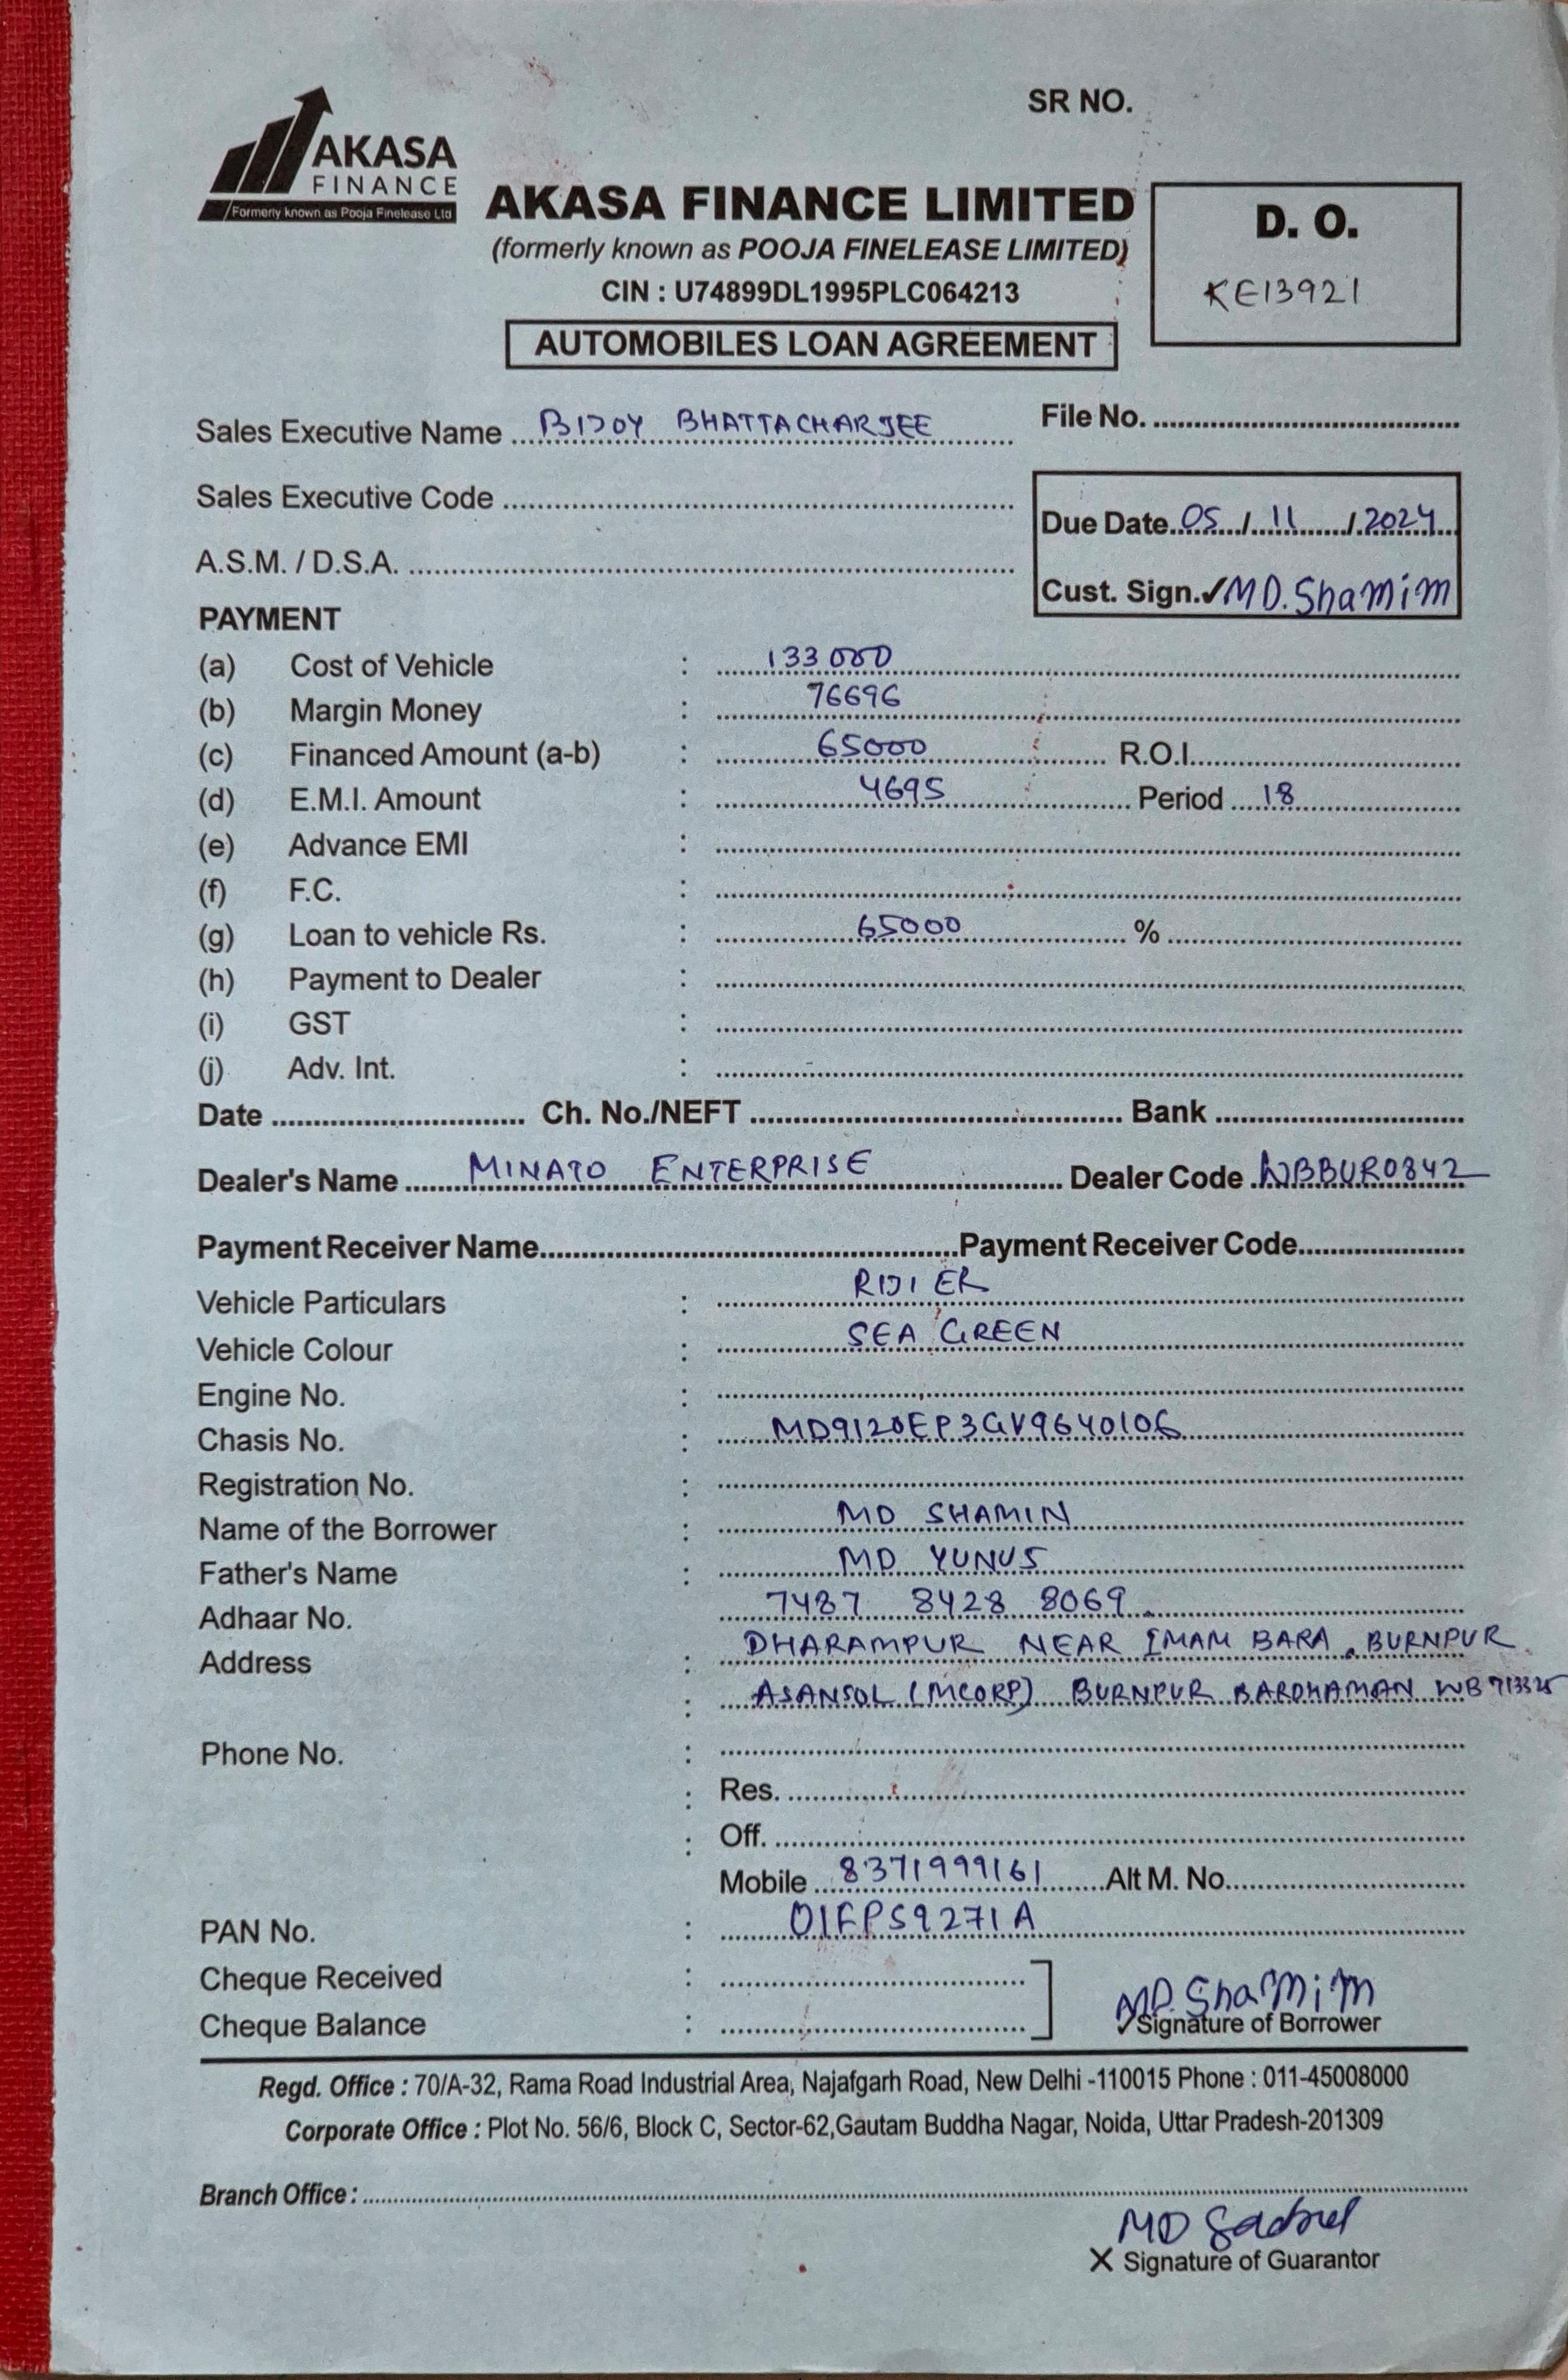 SR NO.
AKASA
FINANCE
Formerly known as Pooja Finelease Ltd
AKASA FINANCE LIMITED
(formerly known as POOJA FINELEASE LIMITED)
CIN : U74899DL1995PLC064213
AUTOMOBILES LOAN AGREEMENT
D. O.
KE13921
Sales Executive Name BIJOY BHATTACHARJEE File No.
Sales Executive Code
Due Date 05 / 11 / 2024
A.S.M. / D.S.A.
Cust. Sign. ✓ MD. Shamim
PAYMENT
(a) Cost of Vehicle : 133000
(b) Margin Money : 76696
(c) Financed Amount (a-b) : 65000 R.O.I.
(d) E.M.I. Amount : 4695 Period 18
(e) Advance EMI :
(f) F.C. :
(g) Loan to vehicle Rs. : 65000 %
(h) Payment to Dealer :
(i) GST :
(j) Adv. Int. :
Date Ch. No./NEFT Bank
Dealer's Name MINATO ENTERPRISE Dealer Code WBBUR0842
Payment Receiver Name Payment Receiver Code
Vehicle Particulars :
Vehicle Colour : SEA GREEN
Engine No. :
Chasis No. : MD9120EP3GV9640106
Registration No. :
Name of the Borrower : MD SHAMIN
Father's Name : MD YUNUS
Adhaar No. 7487 8428 8069
Address : DHARAMPUR NEAR IMAM BARA, BURNPUR
: ASANSOL (MCORP) BURNPUR BARDHAMAN WB 713325
Phone No. :
: Res.
: Off.
Mobile 8371999161 Alt M. No.
PAN No. : OIFPS9271A
Cheque Received :
Cheque Balance :
MD. Shamim
✓ Signature of Borrower
Regd. Office : 70/A-32, Rama Road Industrial Area, Najafgarh Road, New Delhi -110015 Phone : 011-45008000
Corporate Office : Plot No. 56/6, Block C, Sector-62,Gautam Buddha Nagar, Noida, Uttar Pradesh-201309
Branch Office :
MD
X Signature of Guarantor